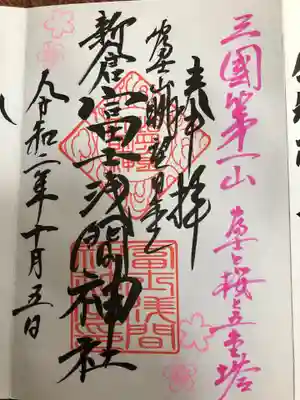 三國第一山
富士と桜と五重塔
奉拝
富士山眺望日本一
新倉富士浅間神社
令和二年十月五日
冨士浅間